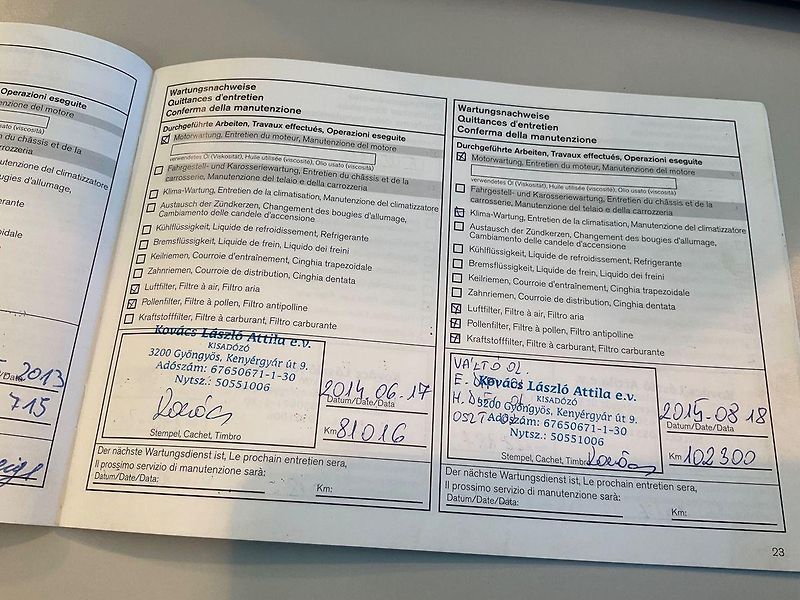 Operazioni eseguite
enzione del motore
usato (viscosità)
du châssis et de la
rrozzeria
anutenzione del climatizzatore
rante
oidale
2013
/Date/Data
715
Wartungsnachweise
Quittances d'entretien
Conferma della manutenzione
Durchgeführte Arbeiten, Travaux effectués, Operazioni eseguite
Motorwartung, Entretien du moteur, Manutenzione del motore
verwendetes Öl (Viskosität), Huile utilisée (viscosité), Olio usato (viscosità)
Fahrgestell- und Karosseriewartung, Entretien du châssis et de la
carrosserie, Manutenzione del telaio e della carrozzeria
Klima-Wartung, Entretien de la climatisation, Manutenzione del climatizzatore
Austausch der Zündkerzen, Changement des bougies d'allumage,
Cambiamento delle candele d'accensione
Kühlflüssigkeit, Liquide de refroidissement, Refrigerante
Bremsflüssigkeit, Liquide de frein, Liquido dei freini
Keilriemen, Courroie d'entraînement, Cinghia trapezoidale
Zahnriemen, Courroie de distribution, Cinghia dentata
Luftfilter, Filtre à air, Filtro aria
Pollenfilter, Filtre à pollen, Filtro antipolline
Kraftstofffilter, Filtre à carburant, Filtro carburante
Kovács László Attila e.v.
KISADÓZÓ
3200 Gyöngyös, Kenyérgyár út 9.
Adószám: 67650671-1-30
Nytsz.: 50551006
Kovács
Stempel, Cachet, Timbro
2014.06.17
Datum/Date/Data
Km 81016
Der nächste Wartungsdienst ist, Le prochain entretien sera,
Il prossimo servizio di manutenzione sarà:
Datum/Date/Data:
Km:
Wartungsnachweise
Quittances d'entretien
Conferma della manutenzione
Durchgeführte Arbeiten, Travaux effectués, Operazioni eseguite
Motorwartung, Entretien du moteur, Manutenzione del motore
verwendetes Öl (Viskosität), Huile utilisée (viscosité), Olio usato (viscosità)
Fahrgestell- und Karosseriewartung, Entretien du châssis et de la
carrosserie, Manutenzione del telaio e della carrozzeria
Klima-Wartung, Entretien de la climatisation, Manutenzione del climatizzatore
Austausch der Zündkerzen, Changement des bougies d'allumage,
Cambiamento delle candele d'accensione
Kühlflüssigkeit, Liquide de refroidissement, Refrigerante
Bremsflüssigkeit, Liquide de frein, Liquido dei freini
Keilriemen, Courroie d'entraînement, Cinghia trapezoidale
Zahnriemen, Courroie de distribution, Cinghia dentata
Luftfilter, Filtre à air, Filtro aria
Pollenfilter, Filtre à pollen, Filtro antipolline
Kraftstofffilter, Filtre à carburant, Filtro carburante
VÁLTÓ OL.
E.
H.
OSZT
Kovács László Attila e.v.
KISADÓZÓ
3200 Gyöngyös, Kenyérgyár út 9.
Adószám: 67650671-1-30
Nytsz.: 50551006
Stempel, Cachet, Timbro
Kovács
2015.08.18
Datum/Date/Data
Km 102300
Der nächste Wartungsdienst ist, Le prochain entretien sera,
Il prossimo servizio di manutenzione sarà:
Datum/Date/Data:
Km:
23